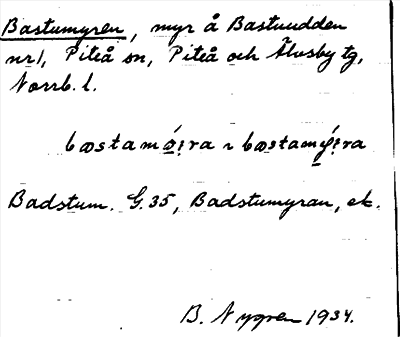 Bastumyren, myr å Bastuudden
nr 1, Piteå sn, Piteå och Älvsby tg,
Norrb. l.
Badstum. G. 35, Badstumyran, ek.
B. Nygren 1934.